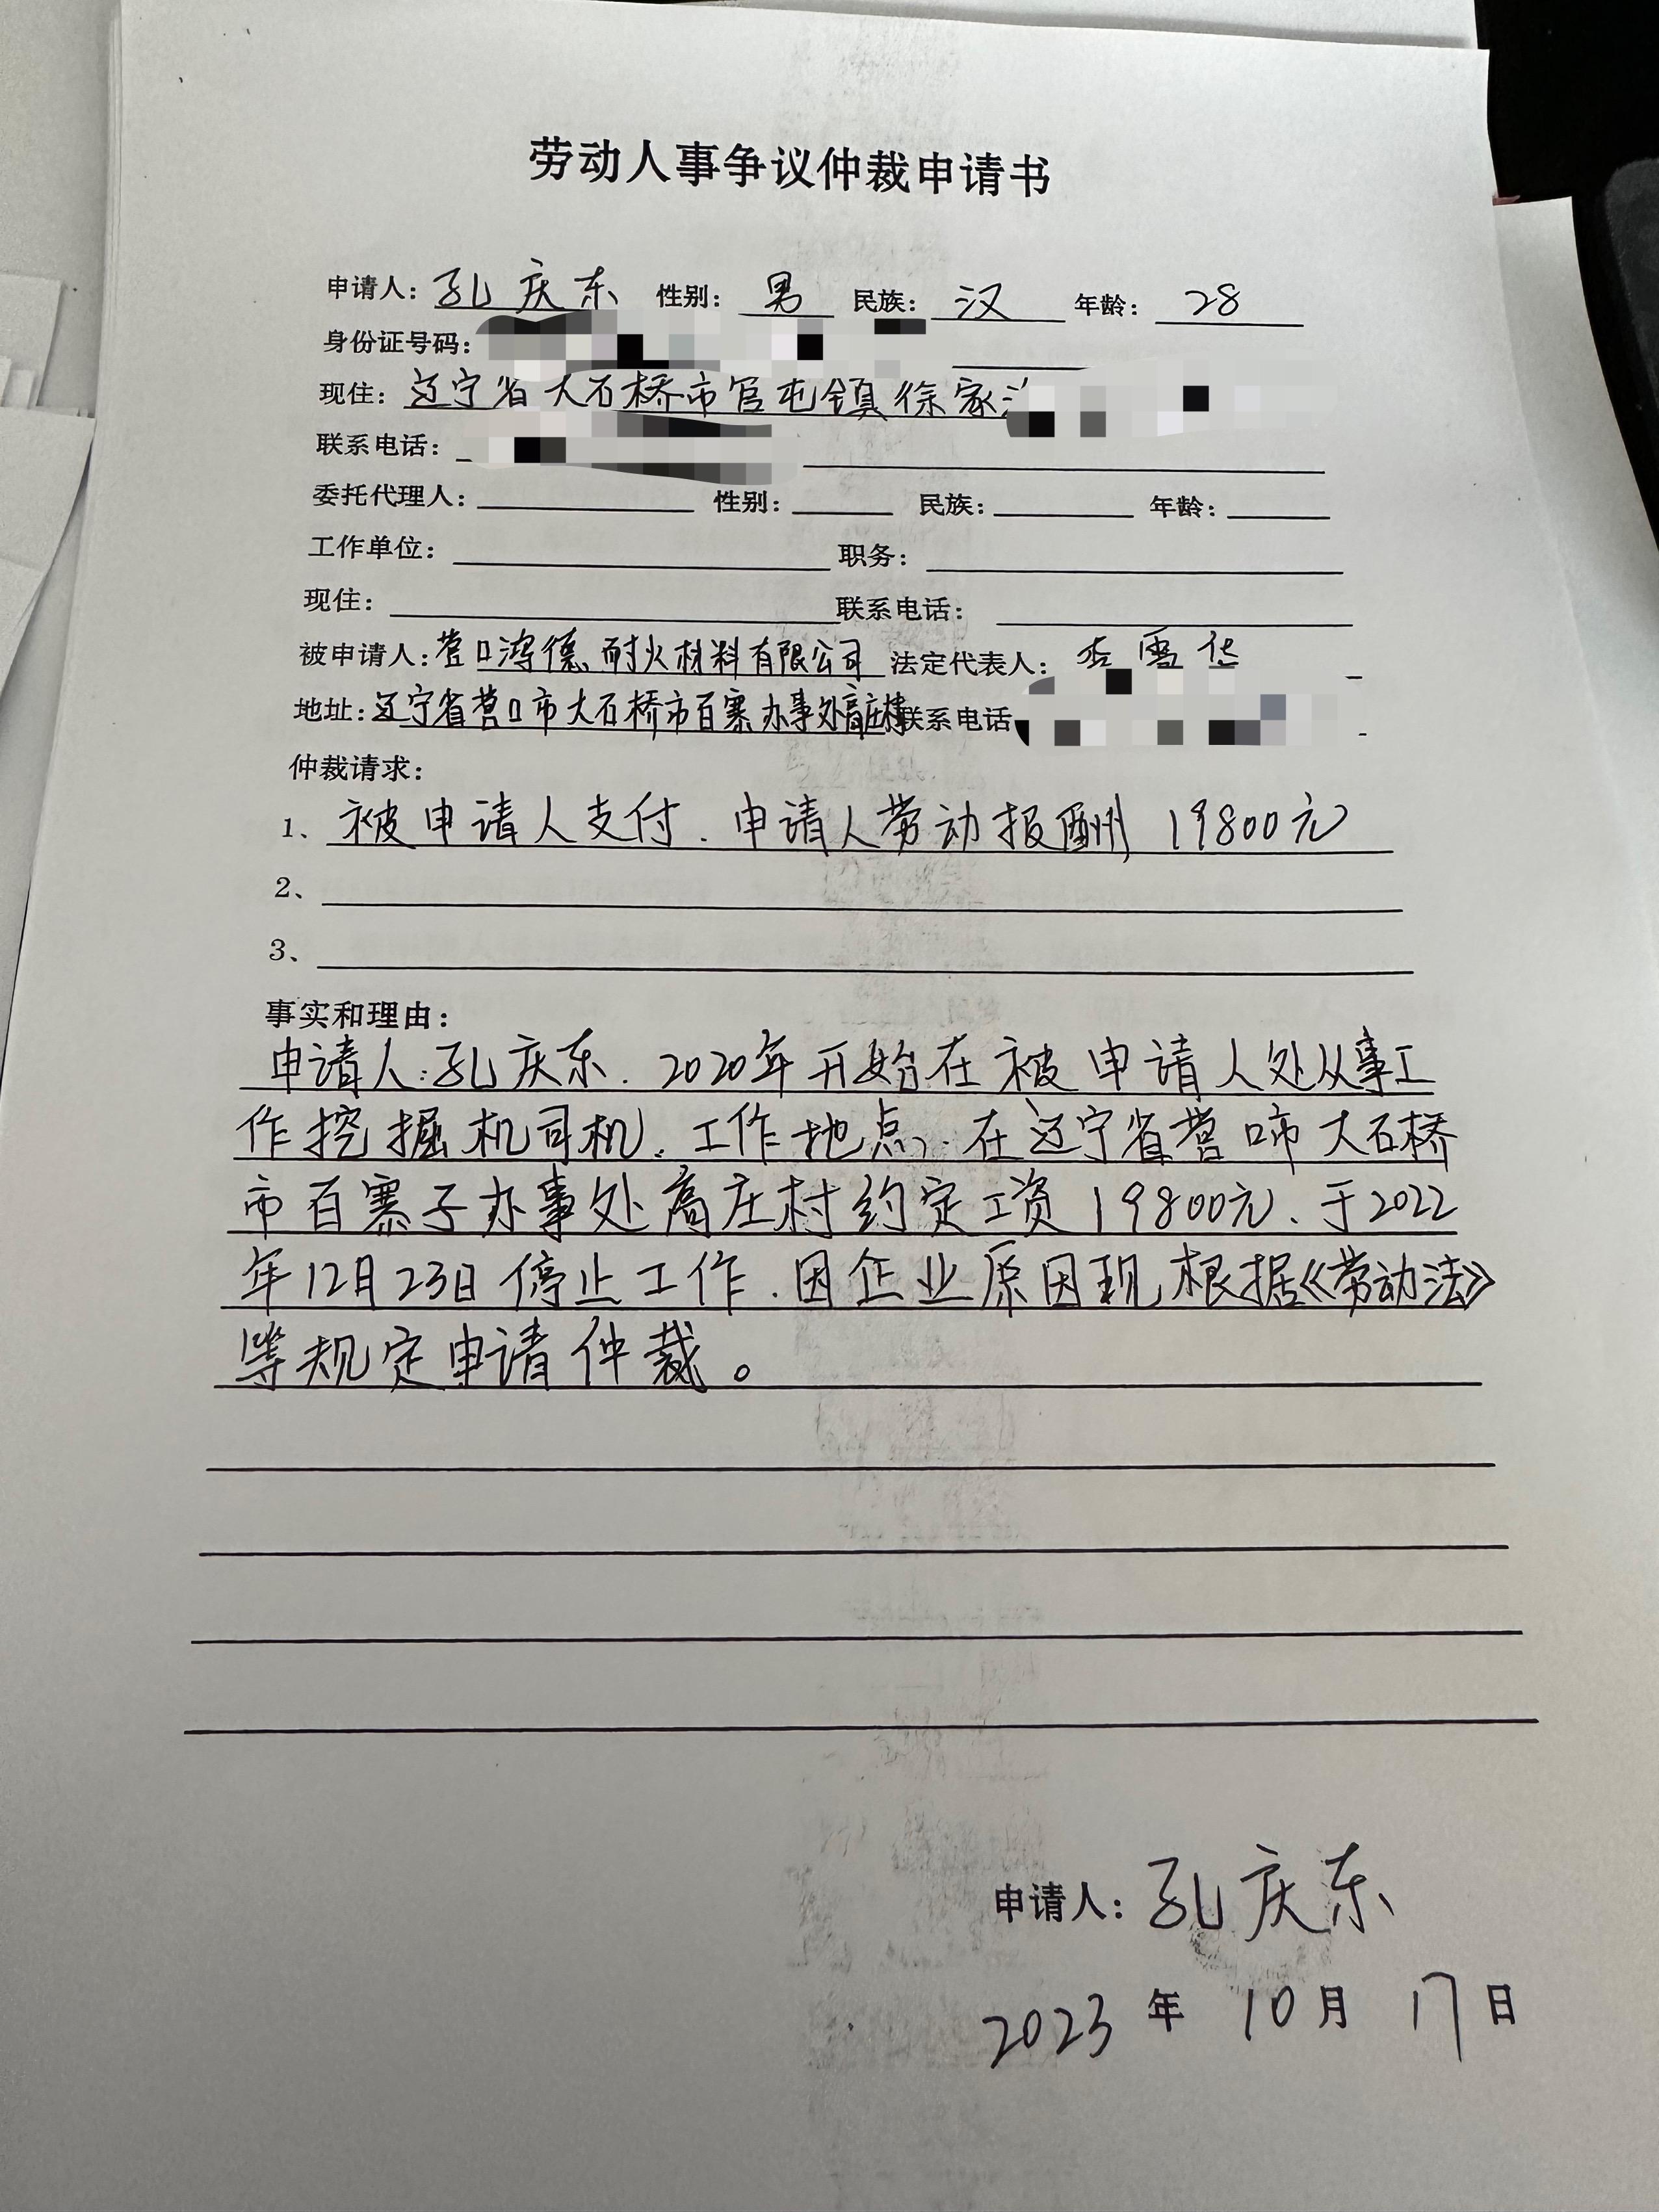 劳动人事争议仲裁申请书
申请人：孔庆东 性别：男 民族：汉 年龄：28
身份证号码：
现住：辽宁省大石桥市官屯镇徐家
联系电话：
委托代理人： 性别： 民族： 年龄：
工作单位： 职务：
现住： 联系电话：
被申请人：营口鸿德耐火材料有限公司 法定代表人：雪
地址：辽宁省营口市大石桥市百寨办事处高庄村 联系电话
仲裁请求：
1、被申请人支付.申请人劳动报酬 19800元
2、
3、
事实和理由：
申请人：孔庆东.2020年开始在被申请人处从事工
作挖掘机司机.工作地点.在辽宁省营口市大石桥
市百寨子办事处高庄村约定工资19800元、于2022
年12月23日停止工作.因企业原因现根据《劳动法》
等规定申请仲裁。
申请人：孔庆东
2023年10月17日